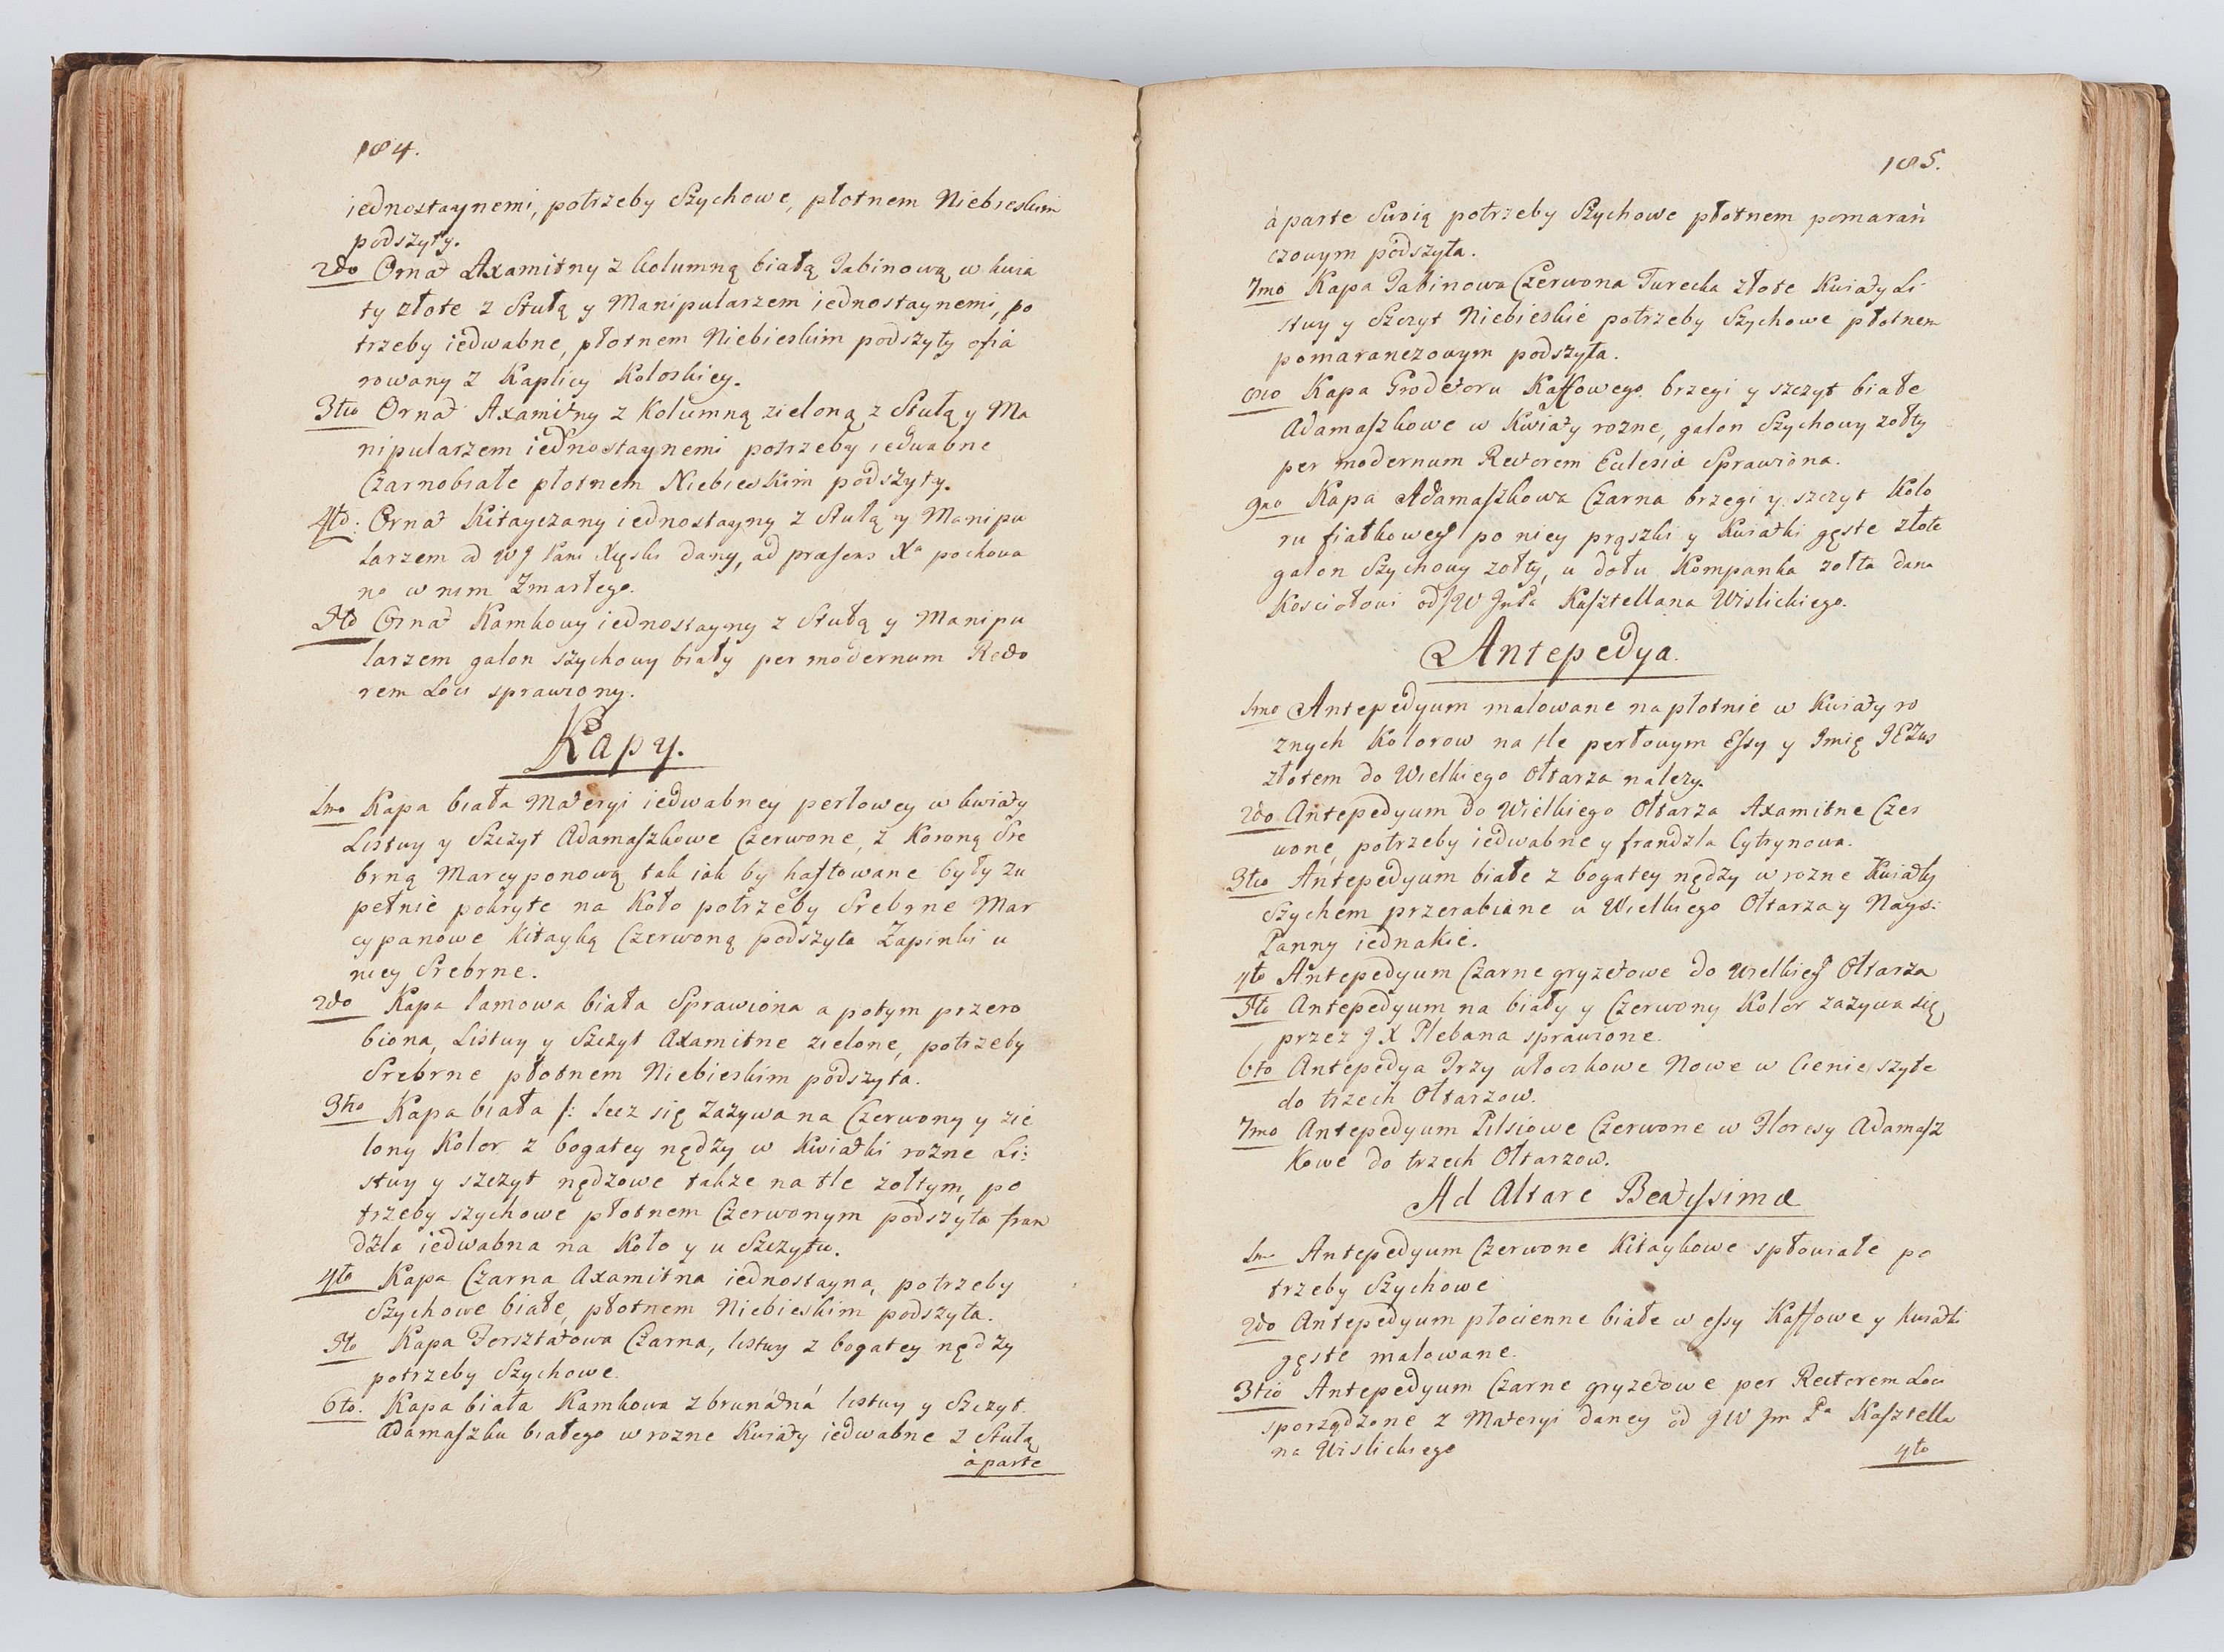 184.
iednostaynemi, potrzeby Szychowe, płotnem Niebieskim
podszyty.
2do Ornat Axamitny z kolumną białą Tabinową w kwia
ty złote z Stułą y Manipularzem iednostaynemi, po
trzeby iedwabne, płotnem Niebieskim podszyty ofia
rowany z Kaplicy Koloskiey.
3tio Ornat Axamitny z Kolumną zieloną z Stułą y Ma
nipularzem iednostaynemi potrzeby iedwabne
Czarnobiałe płotnem Niebieskim podszyty.
4to: Ornat Kitayczany iednostayny z Stułą y Manipu
larzem od WJ Pani dany, ad praesens Xa pochowa
no w nim Zmarłego.
5to Ornat Kamkowy iednostayny z Stułą y Manipu
larzem galon szychowy biały per modernum Recto
rem Loci sprawiony.
Kapy.
1mo Kapa biała Materyi iedwabney perłowey w kwiaty
Listwy y Szczyt Adamaszkowe Czerwone, z Koroną Sre
brną Marcyponową tak iak by haftowane były zu
pełnie pokryte na Koło potrzeby Srebrne Mar
cypanowe Kitayką Czerwoną podszyta Zapinki u
niey Srebrne.
2do Kapa lamowa biała Sprawiona a potym przero
biona, Listwy y Szczyt Axamitne zielone, potrzeby
Srebrne płotnem Niebieskim podszyta.
3tio Kapa biała /: lecz się Zazywa na Czerwony y zie
lony Kolor z bogatey nędzy w Kwiatki rozne Li:
stwy y szczyt nędzowe takze na tle zołtym, po
trzeby szychowe płotnem Czerwonym podszyta fran
dzla iedwabna na Koło y u Szczytu.
4to Kapa Czarna Axamitna iednostayna, potrzeby
Szychowe białe, płotnem Niebieskim podszyta.
5to Kapa Forsztatowa Czarna, listwy z bogatey nędzy
potrzeby Szychowe.
6to: Kapa biała Kamkowa z brunatną listwy y Szczyt
Adamaszku białego w rozne Kwiaty iedwabne z Stułą
à parte
185.
à parte Swoią potrzeby Szychowe płotnem pomarań
czowym podszyta.
7mo Kapa Tabinowa Czerwona Turecka złote Kwiaty Li
stwy y Szczyt Niebieskie potrzeby Szychowe płotnem
pomaranczowym podszyta.
8vo Kapa Grodetoru Kaffowego brzegi y szczyt białe
Adamaszkowe w Kwiaty rozne, galon Szychowy zołty
per modernum Rectorem Eclesiæ Sprawiona.
9no Kapa Adamaszkowa Czarna brzegi y szczyt Kolo
ru fiałkoweg po niey prąszki y Kwiatki gęste złote
galon Szychowy zołty, u dołu Kompanka zołta dana
Kosciołowi od JW JmPa Kasztellana Wislickiego.
Antepedya.
1mo Antepedyum malowane na płotnie w Kwiaty ro
znych Kolorow na tle perłowym Essy y Jmię JEZus
złotem do Wielkiego Ołtarza nalezy.
2do Antepedyum do Wielkiego Ołtarza Axamitne Czer
wone, potrzeby iedwabne y frandzla Cytrynowa.
3tio Antepedyum białe z bogatey nędzy w rozne Kwiatky
Szychem przerabiane u Wielkiego Ołtarza y Nays:
Panny iednakie.
4to Antepedyum Czarne gryzetowe do Wielkieg Ołtarza
5to Antepedyum na biały y Czerwony Kolor zazywa się,
przez J X Plebana sprawione.
6to Antepedya Trzy włoczkowe Nowe w Cienie szyte
do trzech Ołtarzow.
7mo Antepedyum Pilsiowe Czerwone w Floresy Adamasz
Kowe do trzech Ołtarzow.
Ad Altare Beatissimæ
1mo Antepedyum Czerwone Kitaykowe spłowiałe po
trzeby Szychowe
2do Antepedyum płocienne białe w essy Kaffowe y kwiatki
gęste malowane.
3tio Antepedyum Czarne gryzetowe per Rectorem Loci
sporządzone z Materyi daney od JW Jm Pa Kasztella
na Wislickiego
4to